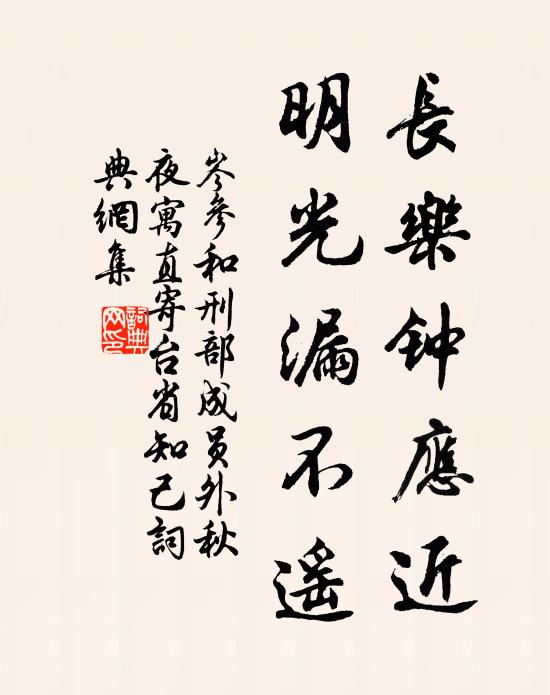 長樂钟應近
明光漏不遥
岑參和刑部成员外秋
夜寓直寄台省知己詞
典網集
詞典网印